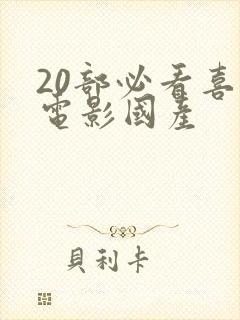 20部必看喜
電影國産
貝利卡